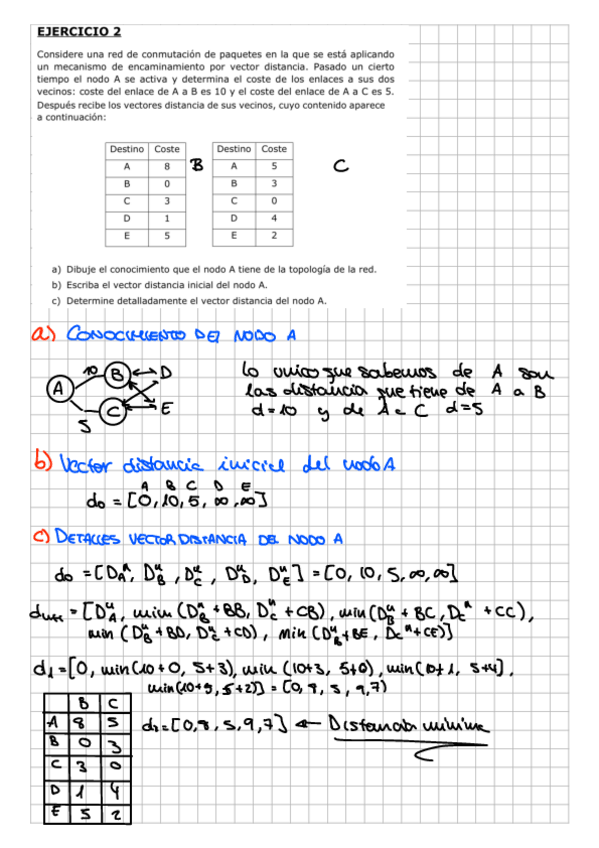 EJERCICIO 2
Considere una red de conmutación de paquetes en la que se está aplicando
un mecanismo de encaminamiento por vector distancia. Pasado un cierto
tiempo el nodo A se activa y determina el coste de los enlaces a sus dos
vecinos: coste del enlace de A a B es 10 y el coste del enlace de A a C es 5.
Después recibe los vectores distancia de sus vecinos, cuyo contenido aparece
a continuación:
Destino Coste Destino Coste
A 8 B A 5 C
B 0 B 3
C 3 C 0
D 1 D 4
E 5 E 2
a) Dibuje el conocimiento que el nodo A tiene de la topología de la red.
b) Escriba el vector distancia inicial del nodo A.
c) Determine detalladamente el vector distancia del nodo A.
a) CONOCIMIENTO DEL NODO A
A 10 B D
5 C E
lo unico que sabemos de A son
las distancia que tiene de A a B
d=10 y de A a C d=5
b) Vector distancia inicial del nodo A
A B C D E
d0 = [0, 10, 5, ∞, ∞]
c) DETALLES VECTOR DISTANCIA DEL NODO A
d0 = [D_A^n, D_B^n, D_C^n, D_D^n, D_E^n] = [0, 10, 5, ∞, ∞]
= [D_A^n, min (D_B^n + BB, D_C^n + CB), min (D_B^n + BC, D_C^n + CC),
min (D_B^n + BD, D_C^n + CD), min (D_B^n + BE, D_C^n + CE)]
d1 = [0, min(10+0, 5+3), min (10+3, 5+0), min(10+1, 5+4),
min(10+5, 5+2)] = [0, 8, 5, 9, 7)
B C
A 8 5
B 0 3
C 3 0
D 1 4
E 5 2
d1 = [0, 8, 5, 9, 7] ← Distancia minima